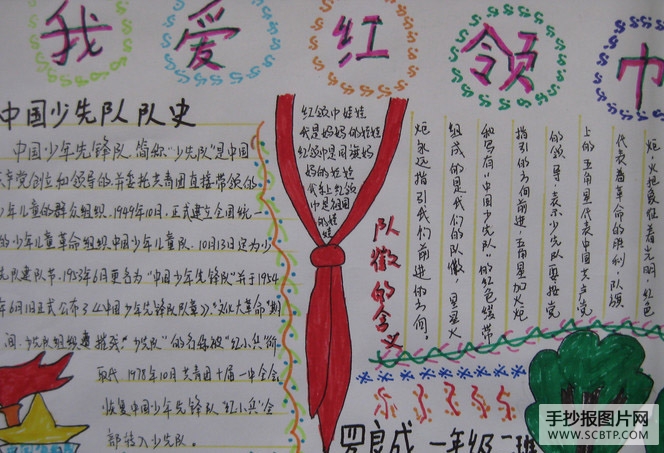 我爱红领巾
中国少先队队史
中国少年先锋队,简称“少先队”是中国
共产党创立和领导的,并委托共青团直接带领的
少年儿童的群众组织。1949年10月,正式建立全国统一
的少年儿童革命组织中国少年儿童队,10月13日定为少
先队建队节。1953年6月更名为“中国少年先锋队”并于1954
年6月1日正式公布了《中国少年先锋队队章》。“文化大革命”期
间,少先队组织遭摧残。“少先队”的名称被“红小兵”所
取代。1978年10月共青团十届一中全会
恢复中国少年先锋队,“红小兵”全
部转入少先队。
红领巾娃娃
我是妈妈的娃娃
红领巾是
妈的娃娃
我系上红领
巾是祖国
的娃
娃
队徽的含义
炬,火把象征着光明,红色
代表着革命的胜利,队旗
上的五角星代表中国共产党
的领导,表示少先队要按党
指引的方向前进,五角星加火炬
和写有“中国少先队”的红色绶带
组成的是我们的队徽,星星火
炬永远指引我们前进的方向。
罗良成 一年级二班
手抄报图片网
WWW.SCBTP.COM